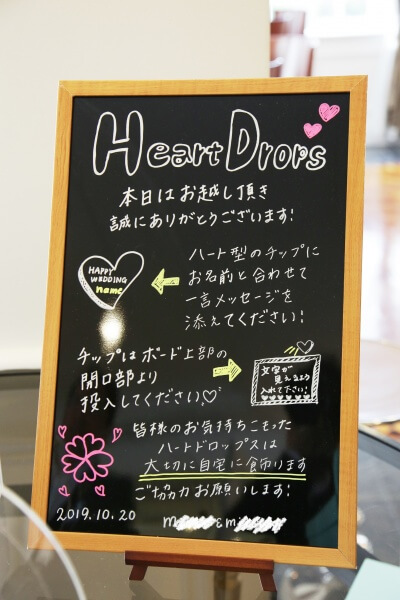 Heart Drops
本日はお越し頂き
誠にありがとうございます!
ハート型のチップに
お名前と合わせて
一言メッセージを
添えてください!
HAPPY
WEDDING
name
チップはボード上部の
開口部より
投入してください♡
文字が
見えるよう
入れて下さい!
皆様のお気持ちこもった
ハートドロップスは
大切に自宅に飾ります
ご協力お願いします!
2019.10.20